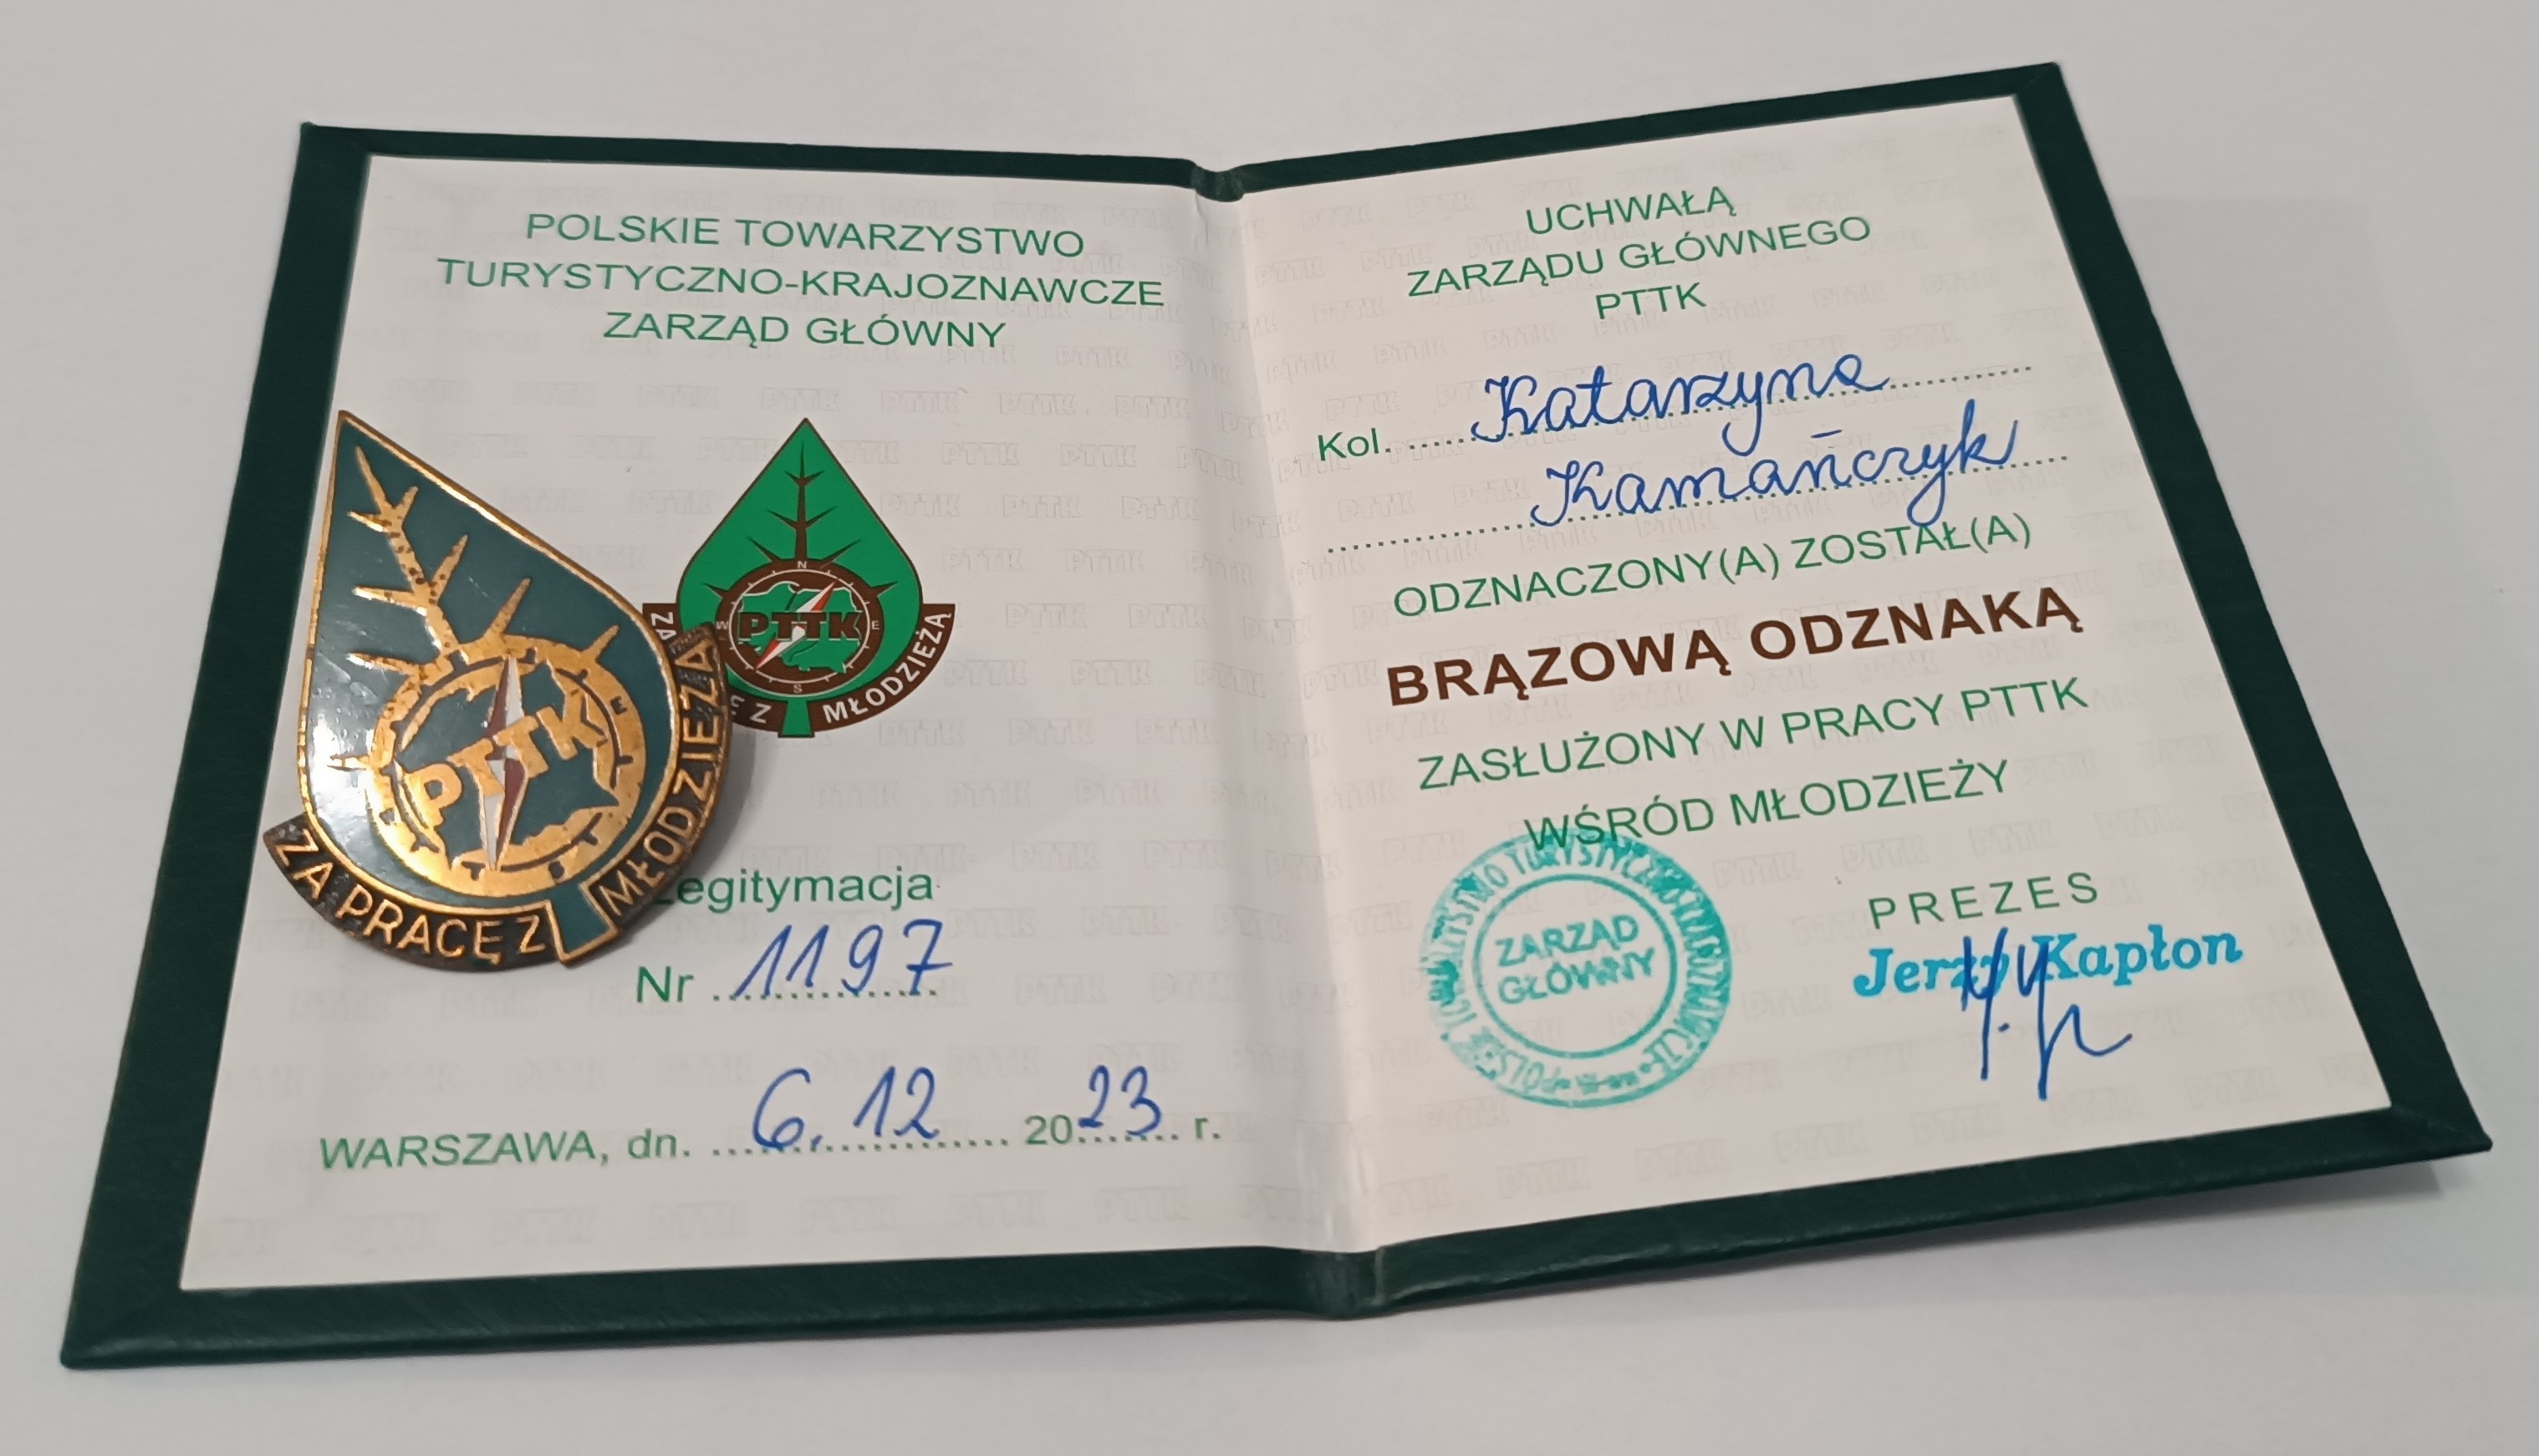 POLSKIE TOWARZYSTWO
TURYSTYCZNO-KRAJOZNAWCZE
ZARZĄD GŁÓWNY
PTTK
ZA PRACĘ Z MŁODZIEŻĄ
N
E
S
W
PTTK
ZA Z MŁODZIEŻĄ
egitymacja
Nr 1197
WARSZAWA, dn. 6.12 2023 r.
UCHWAŁĄ
ZARZĄDU GŁÓWNEGO
PTTK
Kol. Katarzyna
Kamańczyk
ODZNACZONY(A) ZOSTAŁ(A)
BRĄZOWĄ ODZNAKĄ
ZASŁUŻONY W PRACY PTTK
WŚRÓD MŁODZIEŻY
ZARZĄD
GŁÓWNY
PREZES
Jerzy Kapłon